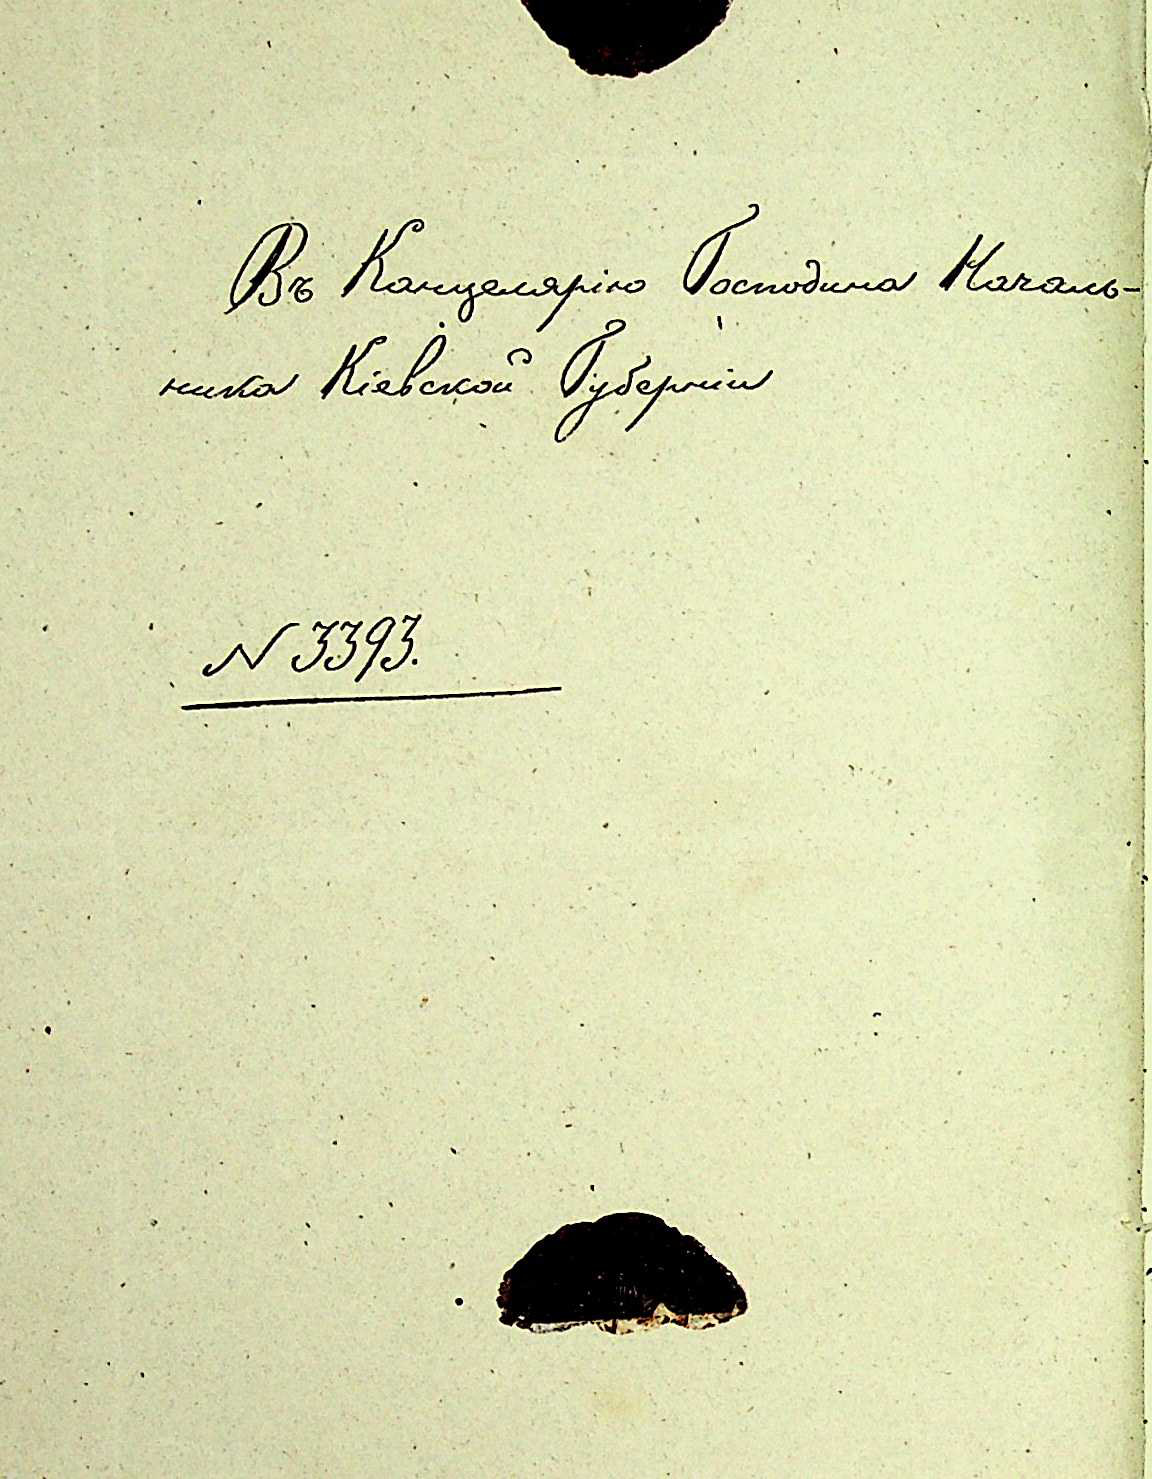 Въ Канцелярію Господина Началь-
ника Кіевской Губерніи
№ 3393.